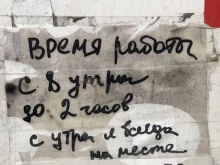 Время работы
с 8 утра
до 2 часов
с утра я всегда
на месте